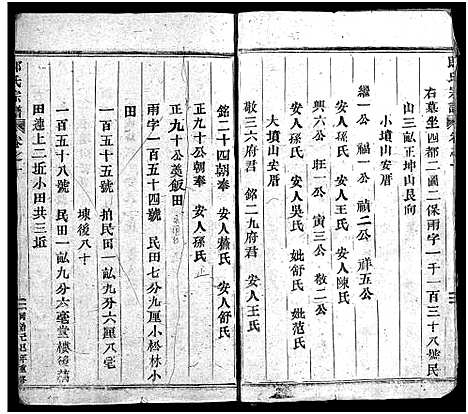 氏宗譜 卷之
右墓坐四都二圖二保兩字一千一百三十八號民
山三畝正坤山艮向
小墳山安厝
繼一公 福一公 禎二公 祥五公
安人孫氏 安人王氏 安人陳氏
興六公 旺一公 寅三公 敬一公
安人孫氏 安人吳氏 妣舒氏 妣范氏
大墳山安厝
敬三六府君 銘二九府君 安人王氏
銘二十四朝奉 安人蔡氏 安人舒氏
正九十公朝奉 安人孫氏
正九十公羮飯田
雨字一百五十四號 民田七分九厘小松林小
田
一百五十五號 拍民田一畝九分六厘八宅
埭後八十
一百五十八號 民田一畝九分六毫堂樓後溝
田連上二坵小田共三坵
氏宗譜 卷之